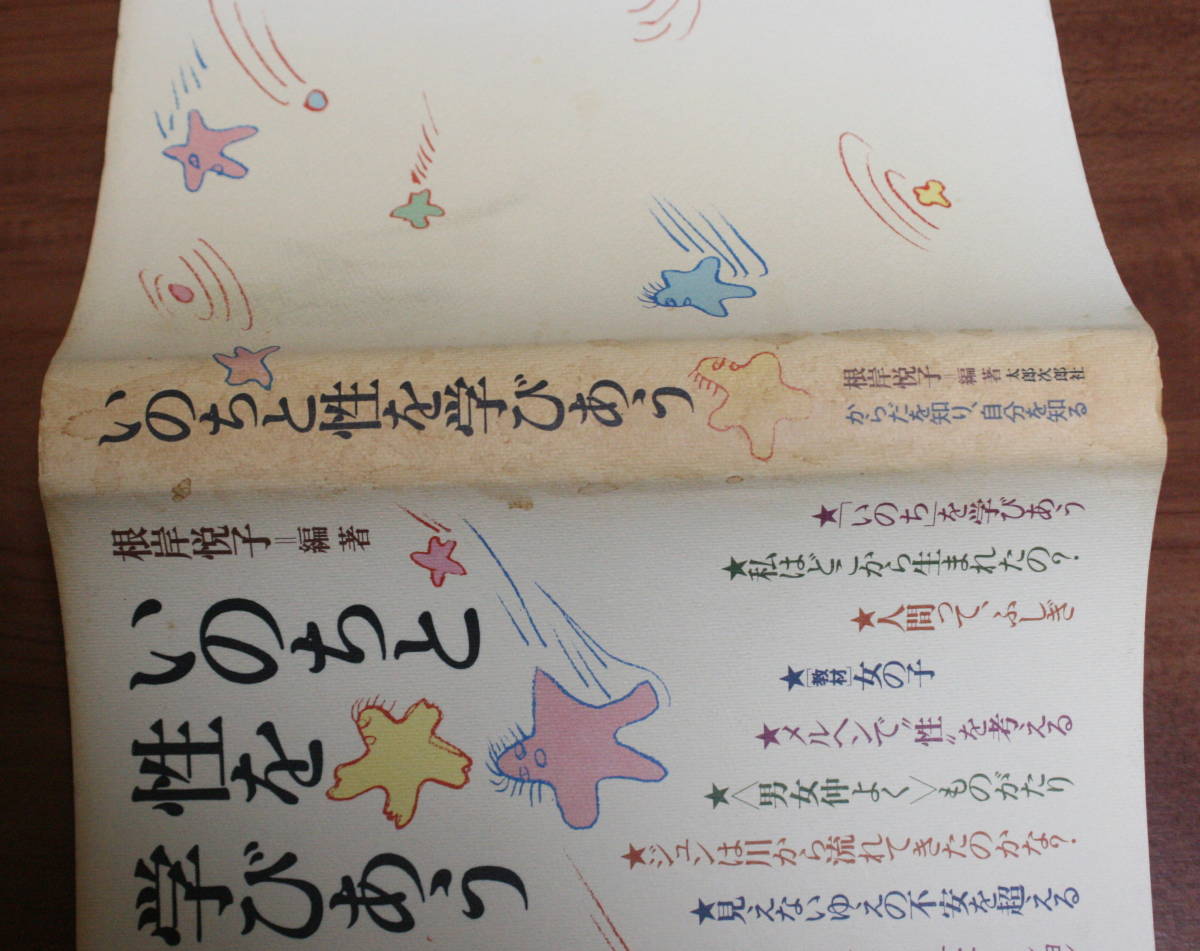 いのちと性を学びあう
根岸悦子=編著 太郎次郎社
からだを知り、自分を知る
根岸悦子=編著
いのちと
性を
学びあう
★「いのち」を学びあう
★私はどこから生まれたの?
★人間って、ふしぎ
★[教材]女の子
★メルヘンで“性”を考える
★〈男女仲よく〉ものがたり
★ジュンは川から流れてきたのかな?
★見えないゆえの不安を超える